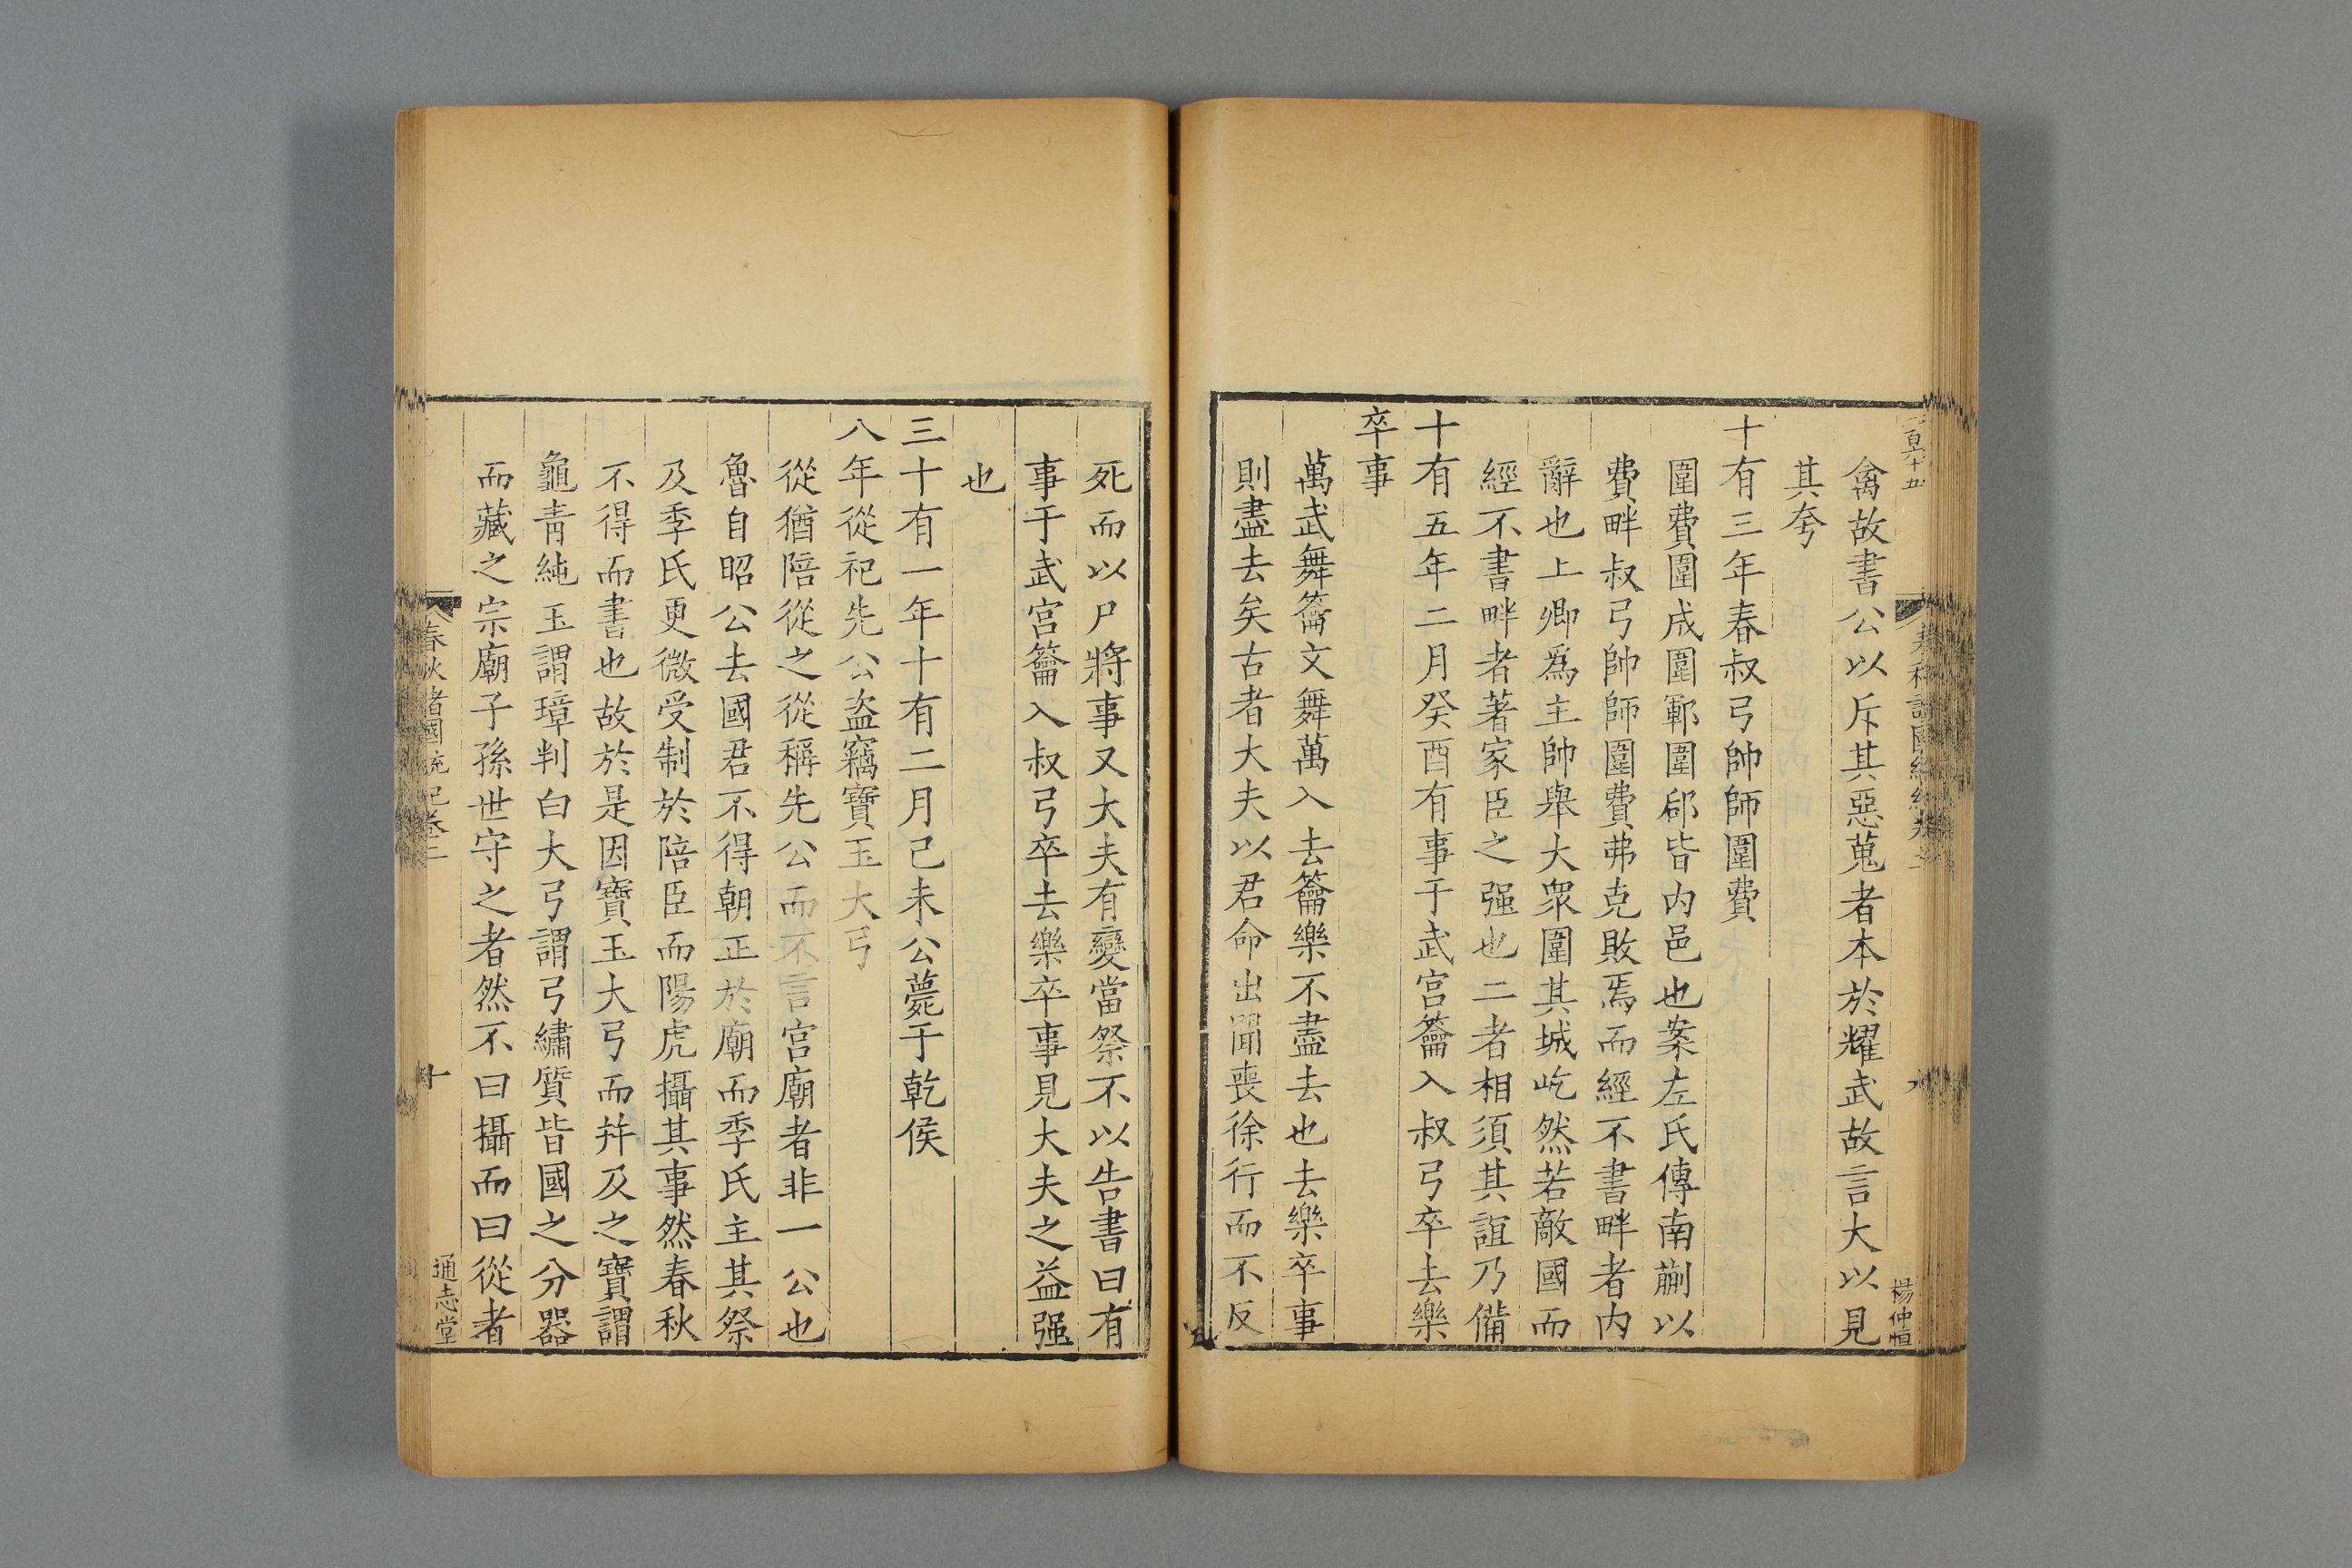 禽故書公以斥其惡蒐者本於耀武故言大以見
其夸
十有三年春叔弓帥師圍費
圍費圍成圍鄆圍郈皆內邑也案左氏傳南蒯以
費畔叔弓帥師圍費弗克敗焉而經不書畔者内
辭也上卿爲主帥舉大眾圍其城屹然若敵國而
經不書畔者著家臣之强也二者相須其誼乃備
十有五年二月癸酉有事于武宮籥入叔弓卒去樂
卒事
萬武舞籥文舞萬入去籥樂不盡去也去樂卒事
則盡去矣古者大夫以君命出聞喪徐行而不反
楊仲恒
死而以尸將事又大夫有變當祭不以告書曰有
事于武宮籥入叔弓卒去樂卒事見大夫之益强
也
三十有一年十有二月己未公薨于乾侯
八年從祀先公盗竊寶玉大弓
從猶陪從之從稱先公而不言宮廟者非一公也
魯自昭公去國君不得朝正於廟而季氏主其祭
及季氏更微受制於陪臣而陽虎攝其事然春秋
不得而書也故於是因寶玉大弓而并及之寶謂
龜青純玉謂璋判白大弓謂弓繡質皆國之分器
而藏之宗廟子孫世守之者然不曰攝而曰從者
春秋諸國統紀卷二
十
通志堂